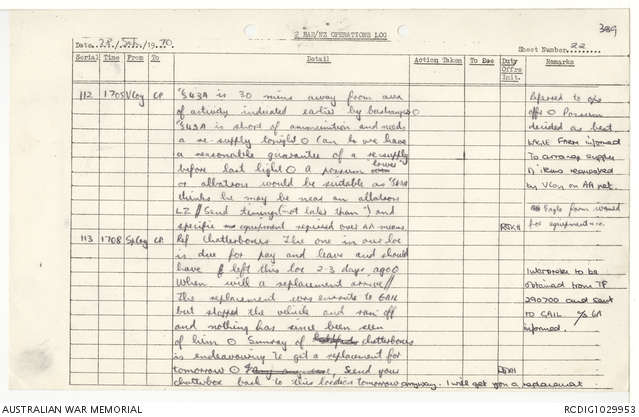 389
2 RAR/NZ OPERATIONS LOG
Date 28 / Feb / 1970
Sheet Number 22
Serial Time From To Detail Action Taken To Dec Duty Offrs Init. Remarks
112 1705 V Coy CP S43A is 30 mins away from area
of activity indicated earlier by bushranger O
S43A is short of ammunition and needs
a re-supply tonight O Can to we have
a reasonable guarantee of a resupply
before last light O A possum "lower"
or albatross would be suitable as S43A
thinks he may be near an albatross
LZ // Send timings ("not later than") and
specific equipment required over AA means
Referred to ops
offr O Possum
decided as best
EAGLE FARM informed
To arrange supplies
requested
by V Coy on AA net.
Eagle farm warned
for equipment
113 1708 CP Ref Chatterboxes The one in our loc
is due for pay and leave and should
have left this loc 2-3 days ago O
When will a replacement arrive //
The replacement was enroute to GAIL
but stopped the vehicle and ran off
and nothing has since been seen
of him O Sunray of chatterboxes
is endeavouring to get a replacement for
tomorrow O Send your
chatterbox back to this location tomorrow anyway. I will get you a replacement
Interpreter to be
obtained from TP
290700 and sent
TO GAIL
informed.
AUSTRALIAN WAR MEMORIAL
RCDIG1029953